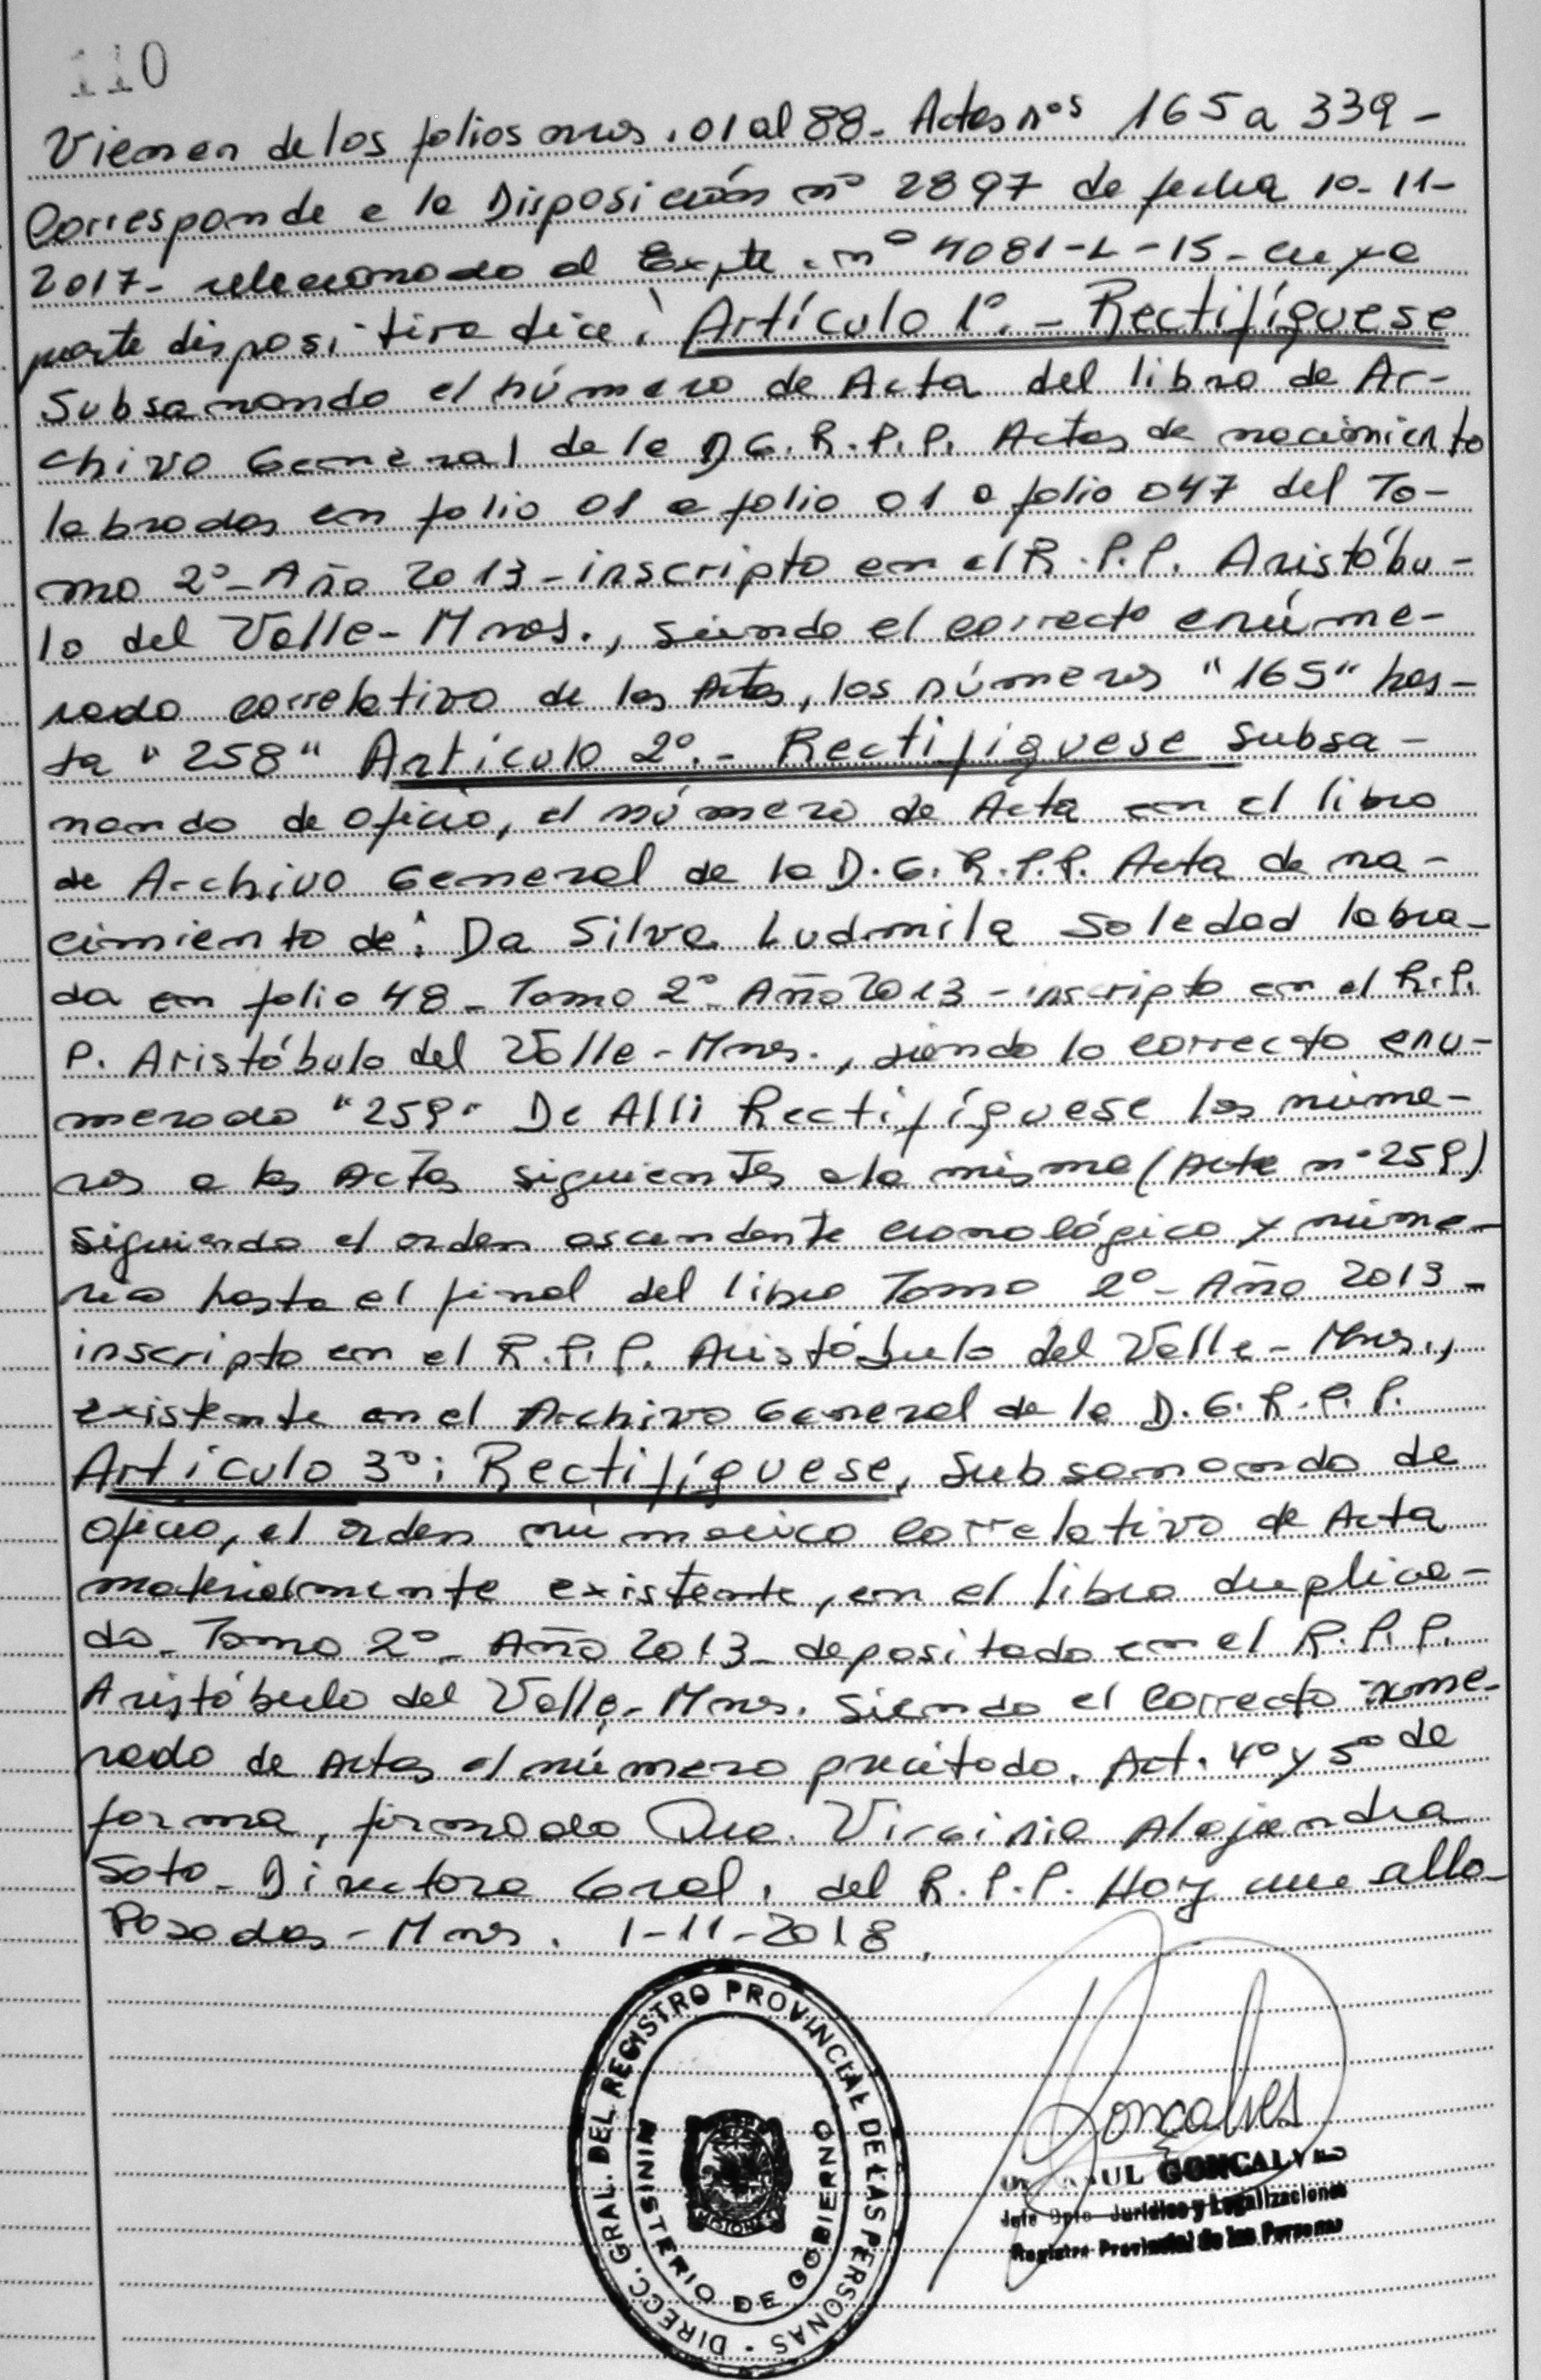 110
Vienen de los folios nros. 01 al 88- Actas nºs 165 a 339-
Corresponde a la Disposición nº 2897 de fecha 10-11-
2017- relacionado al Expte. nº 4081-L-15- cuya
parte dispositiva dice: Artículo 1º.- Rectifíquese
Subsanando el número de Acta del libro de Ar-
chivo General de la D.G.R.P.P. Actas de nacimiento
labradas en folio 01 a folio 01 a folio 047 del To-
mo 2º- Año 2013- inscripto en el R.P.P. Aristóbu-
lo del Valle- Mnes., siendo el correcto enúme-
rado correlativo de las Actas, los números "165" has-
ta "258" Artículo 2º.- Rectifíquese subsa-
nando de oficio, el número de Acta en el libro
de Archivo General de la D.G.R.P.P. Acta de na-
cimiento de: Da Silva Ludmila Soledad labra-
da en folio 48- Tomo 2º- Año 2013- inscripto en el R.P.
P. Aristóbulo del Valle- Mnes., siendo lo correcto enu-
merado "259" De Alli Rectifíquese los núme-
ros a las Actas siguientes a la misma (Acta nº 259)
siguiendo el orden ascendente cronológico y núme-
rico hasta el final del libro Tomo 2º- Año 2013-
inscripto en el R.P.P. Aristóbulo del Valle- Mnes.,
existente en el Archivo General de la D.G.R.P.P.
Artículo 3º: Rectifíquese, Subsanando de
oficio, el orden númerico correlativo de Acta
materialmente existente, en el libro duplica-
do- Tomo 2º- Año 2013- depositado en el R.P.P.
Aristóbulo del Valle- Mnes. Siendo el correcto nume-
rado de Actas el número precitado. Art. 4º y 5º de
forma, firmado Dra. Virginia Alejandra
Soto- Directora Gral. del R.P.P. Hoy
Posadas- Mnes. 1-11-2018.
DIRECC. GRAL. DEL REGISTRO PROVINCIAL DE LAS PERSONAS -
MINISTERIO DE GOBIERNO
MISIONES
Gonçalves
GONCALVES
Jefe Dpto Jurídico y Legalizaciones
Registro Provincial de las Personas